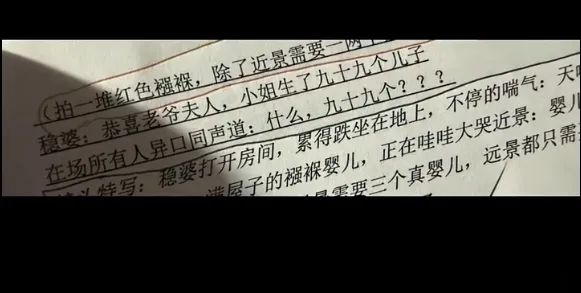 （拍一堆红色襁褓，除了近景需要一两个
稳婆：恭喜老爷夫人，小姐生了九十九个儿子
在场所有人异口同声道：什么，九十九个？？？
特写：稳婆打开房间，累得跌坐在地上，不停的喘气：天
满屋子的襁褓婴儿，正在哇哇大哭近景：婴儿
需要三个真婴儿，远景都只需